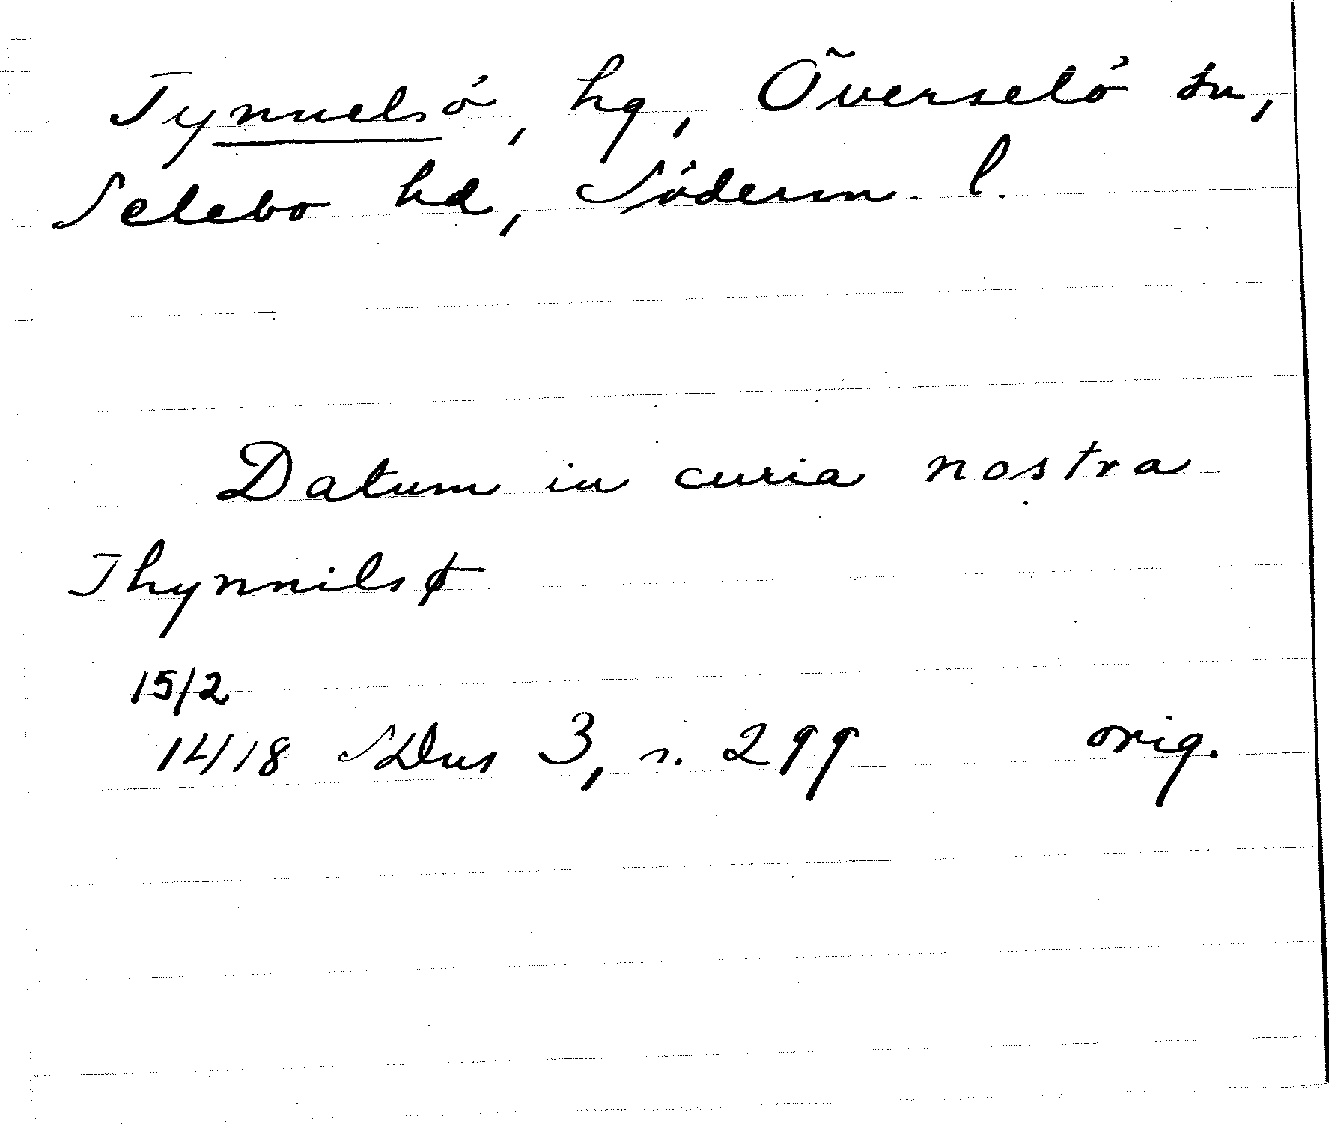 Tynnelsö, hg, Överselö sn,
Selebo hd, Söderm. l.
Datum in curia nostra
Thynnilsø
15/2
1418 SDns 3, s. 299 orig.